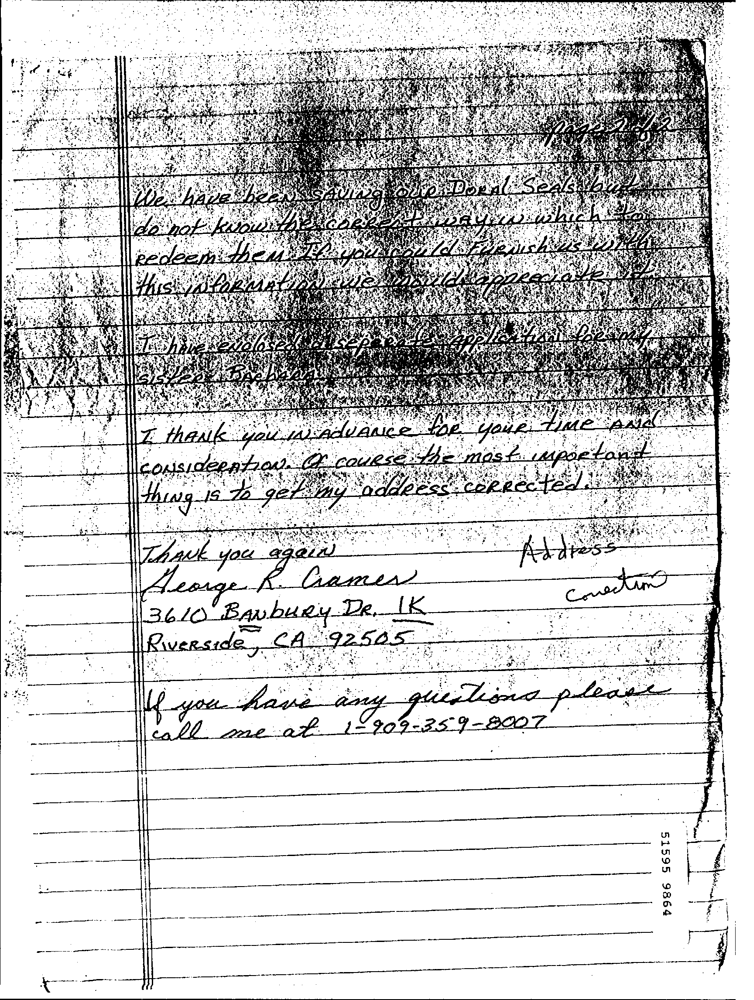 page 2 of 2
We have been saving our Doral Seals but
do not know the correct way in which to
redeem them If you could Furnish us with
this information we would appreciate it.
I have enclosed a seperate application for my
sister Barbara.
I thank you in advance for your time and
consideration. Of course the most important
thing is to get my address corrected.
Thank you again
George R. Cramer
3610 Banbury Dr. 1K
Riverside, CA 92505
Address
Correction
If you have any questions please
call me at 1-909-359-8007
51595 9864